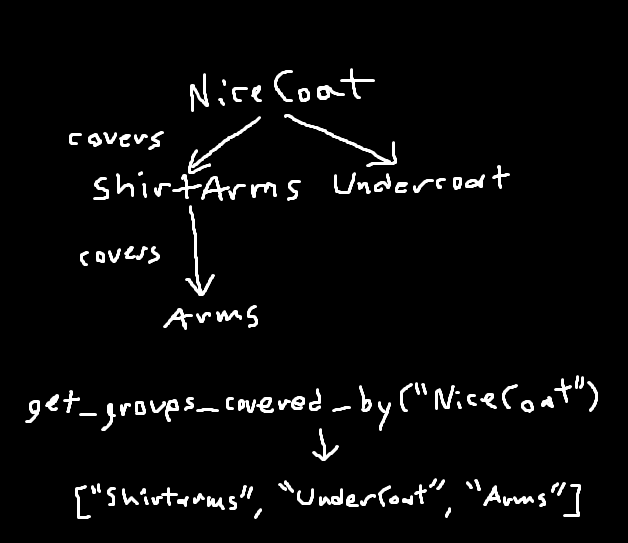 NiceCoat
covers
ShirtArms Undercoat
covers
Arms
get_groups_covered_by("NiceCoat")
["Shirtarms", "UnderCoat", "Arms"]